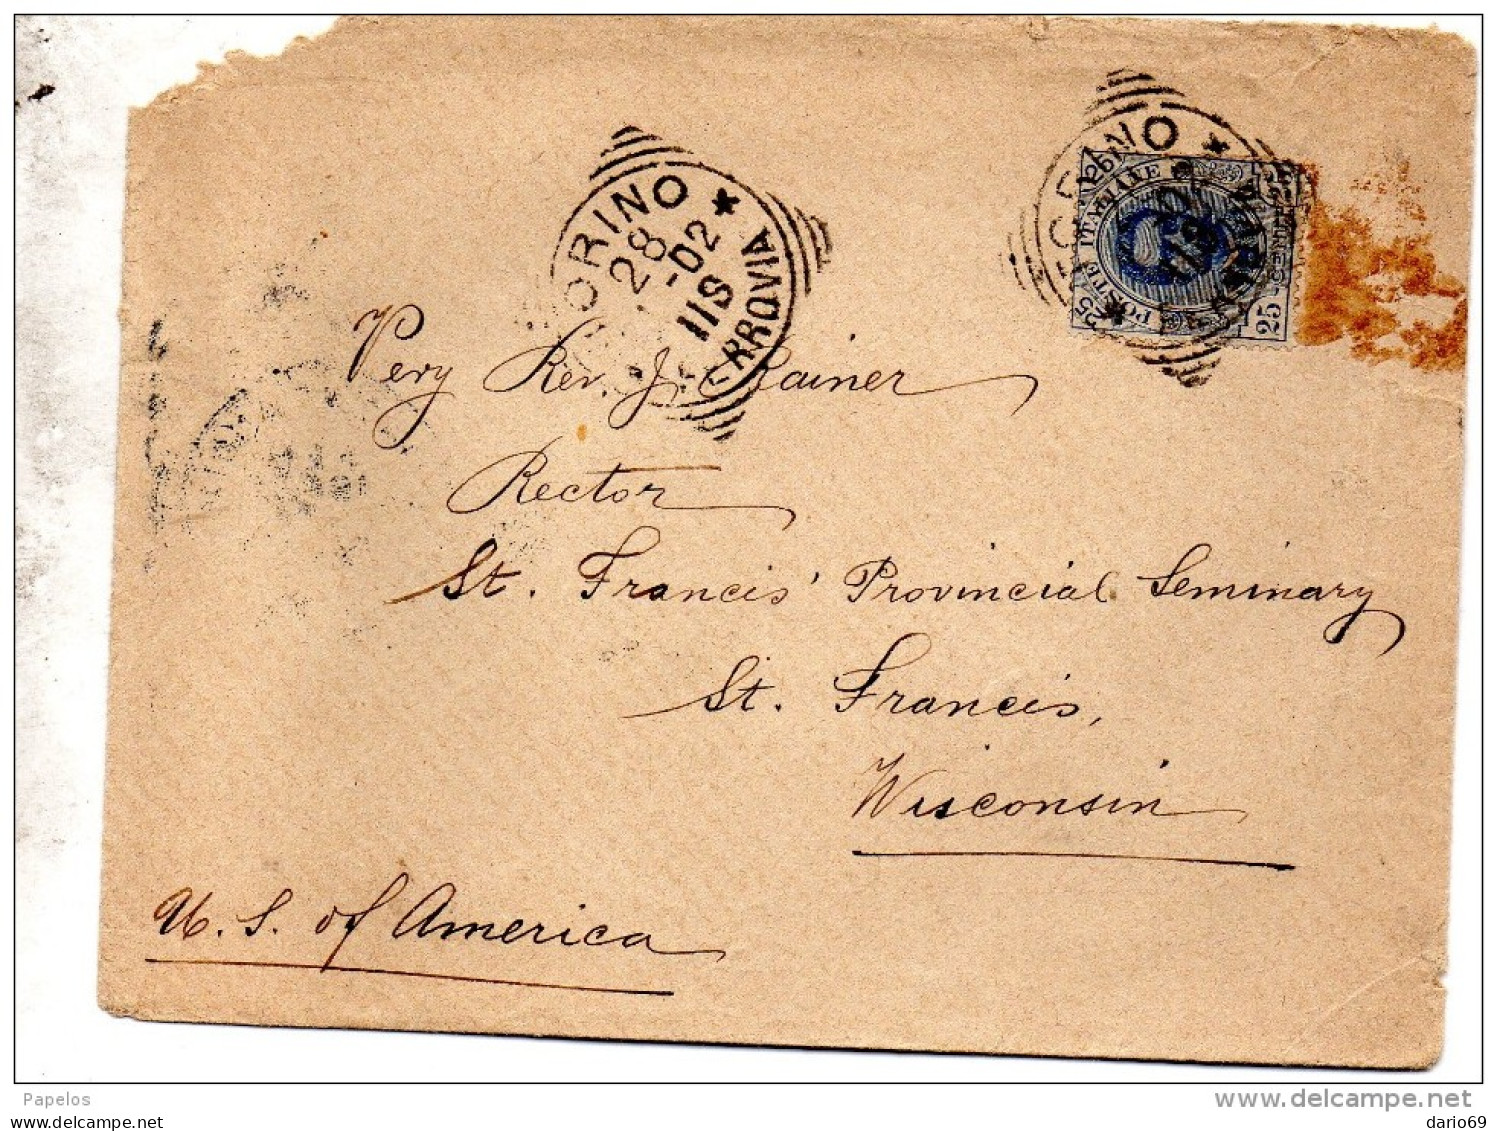 TORINO *
28
-02
11S
FERROVIA
POSTE ITALIANE
25
25
25
Very Rev. J. Rainer
Rector
St. Francis' Provincial Seminary
St. Francis,
Wisconsin
U. S. of America
Papelos
delcampe.net
www.delcampe.net
dario69